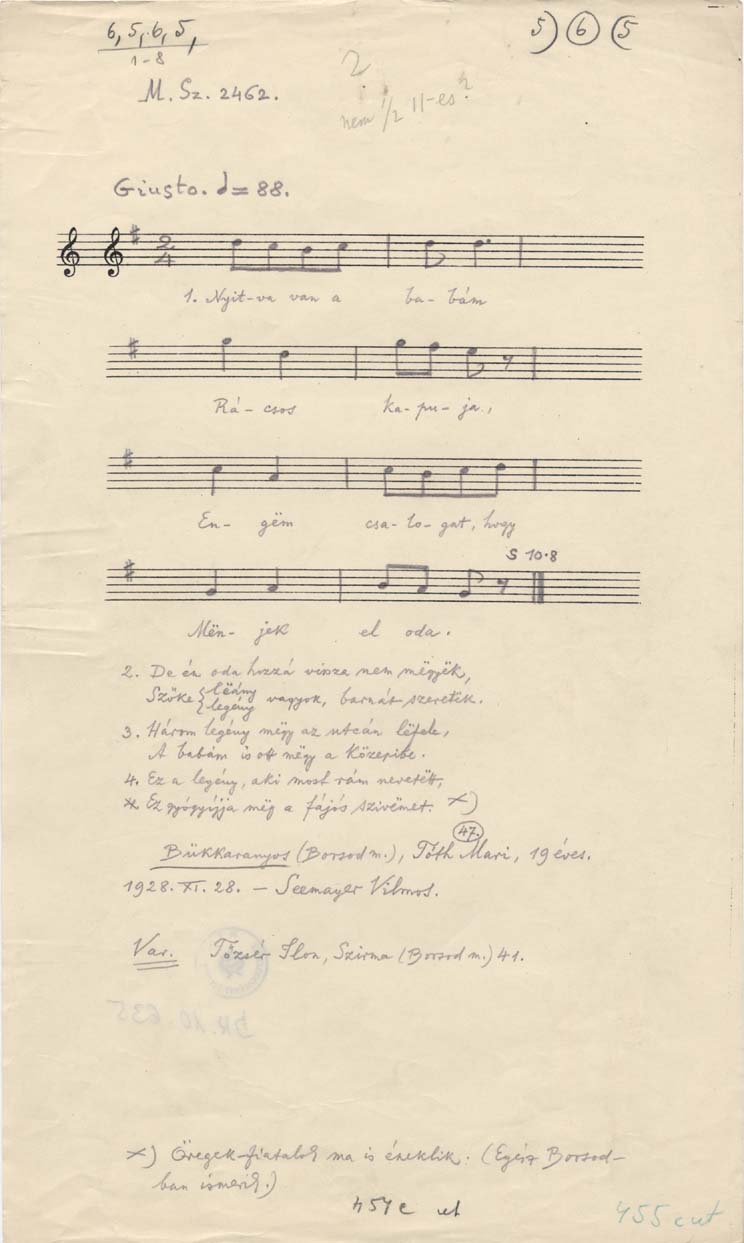 6, 5, 6, 5,
1-8
5) 6 (5
M. Sz. 2462.
?
nem 1/2 11-es?
Giusto. = 88.
2
4
1. Nyit-va van a ba- bám
Rá- csos ka- pu- ja.,
En- gëm csa- lo- gat, hogy
S 10.8
Mën- jek el oda.
2. De én oda hozzá vissza nem mëgyëk,
Szőke { lëány legény vagyok, barnát szeretëk.
3. Három legény mëgy az utcán lëfele,
A babám is ott mëgy a közepibe.
4. Ez a legény, aki most rám nevetëtt,
Ez gyógyíjja mëg a fájós szivëmet. x)
47.
Bükkaranyos (Borsod m.), Tóth Mari, 19 éves.
1928. XI. 28. – Seemayer Vilmos.
Var. Tőzsér Ilon, Szirma (Borsod m.) 41.
x) Öregek-fiatalok ma is éneklik. (Egész Borsod-
ban ismerik.)
455 cut